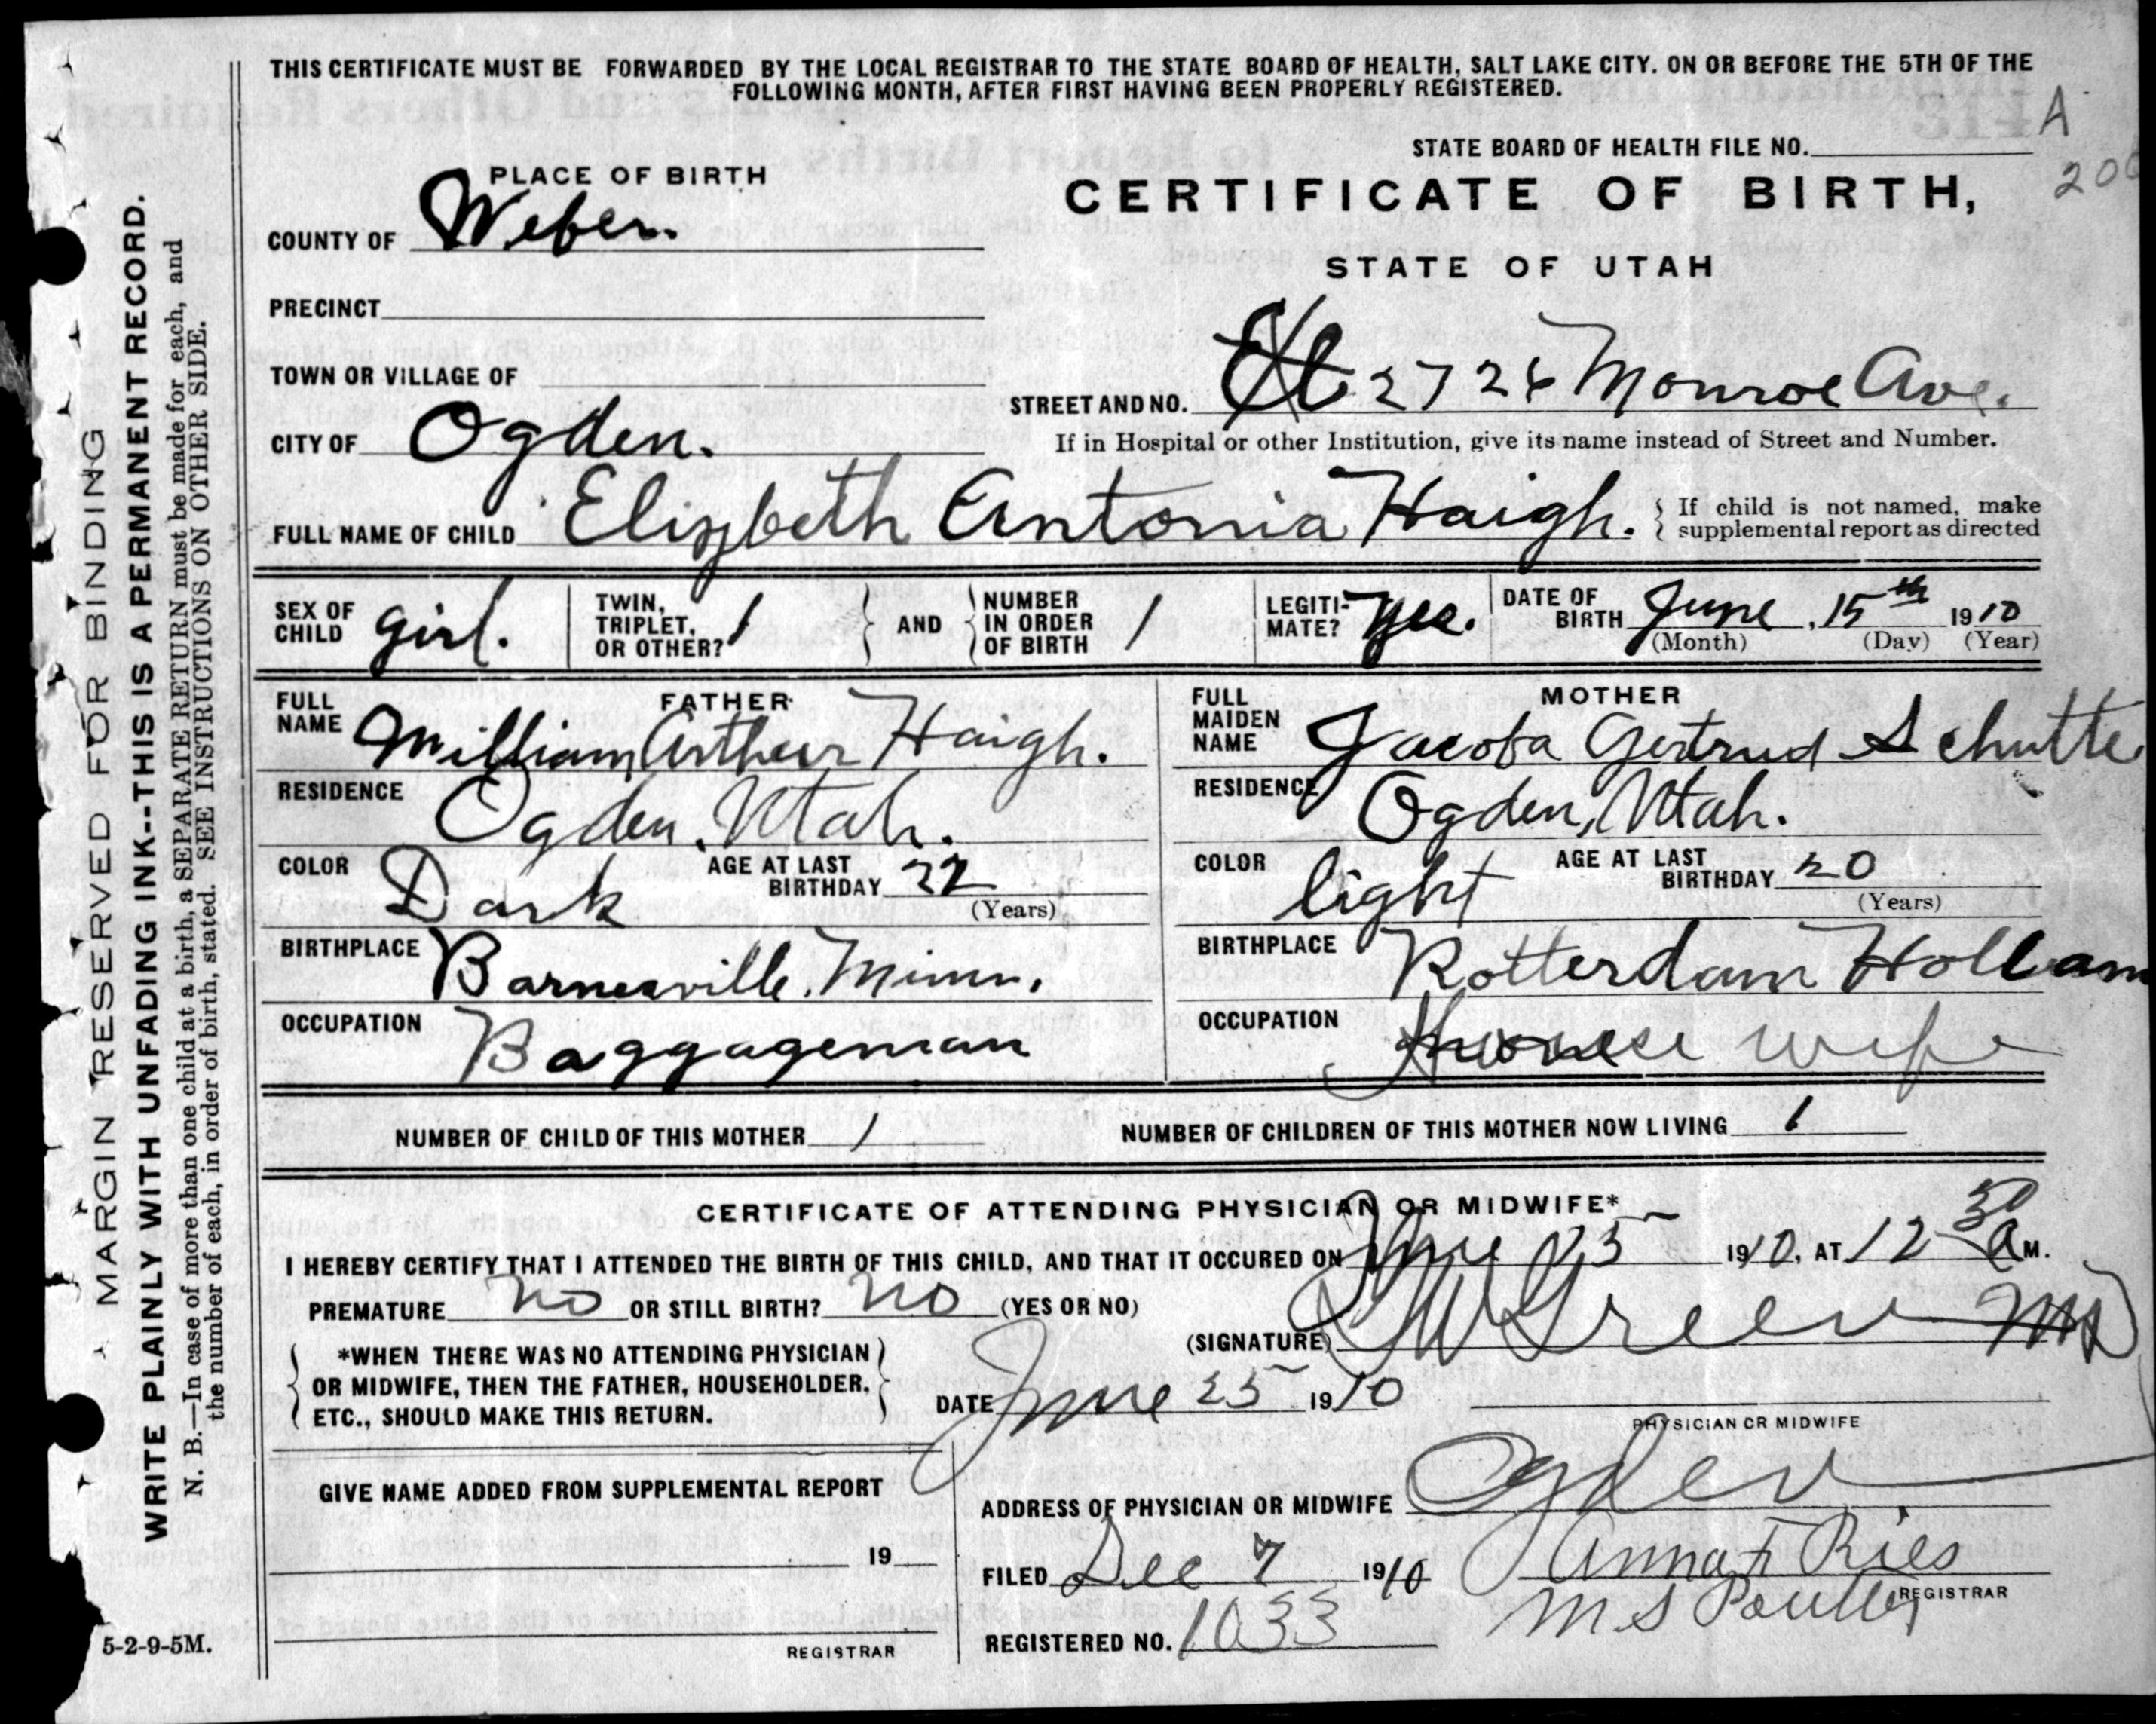 THIS CERTIFICATE MUST BE FORWARDED BY THE LOCAL REGISTRAR TO THE STATE BOARD OF HEALTH, SALT LAKE CITY. ON OR BEFORE THE 5TH OF THE
FOLLOWING MONTH, AFTER FIRST HAVING BEEN PROPERLY REGISTERED.
A
STATE BOARD OF HEALTH FILE NO.
200
PLACE OF BIRTH
CERTIFICATE OF BIRTH,
COUNTY OF Weber.
STATE OF UTAH
PRECINCT
TOWN OR VILLAGE OF
STREET AND NO. 2726 Monroe Ave.
CITY OF Ogden.
If in Hospital or other Institution, give its name instead of Street and Number.
FULL NAME OF CHILD Elizbeth Antonia Haigh.
If child is not named, make
supplemental report as directed
SEX OF CHILD girl.
TWIN, TRIPLET, OR OTHER? 1
AND
NUMBER IN ORDER OF BIRTH 1
LEGITI-MATE? Yes.
DATE OF BIRTH June, 15th 1910
(Month) (Day) (Year)
FATHER
FULL NAME William Arthur Haigh.
RESIDENCE Ogden, Utah.
COLOR Dark
AGE AT LAST BIRTHDAY 22
(Years)
BIRTHPLACE Barnesville, Minn.
OCCUPATION Baggageman
MOTHER
FULL MAIDEN NAME Jacoba Gertrud Schutte
RESIDENCE Ogden, Utah.
COLOR light
AGE AT LAST BIRTHDAY 20
(Years)
BIRTHPLACE Rotterdam Hollam
OCCUPATION House wife
NUMBER OF CHILD OF THIS MOTHER 1
NUMBER OF CHILDREN OF THIS MOTHER NOW LIVING 1
CERTIFICATE OF ATTENDING PHYSICIAN OR MIDWIFE*
I HEREBY CERTIFY THAT I ATTENDED THE BIRTH OF THIS CHILD, AND THAT IT OCCURED ON June 15 1910, AT 12 30 A M.
PREMATURE no OR STILL BIRTH? no (YES OR NO)
(SIGNATURE) Green MD
*WHEN THERE WAS NO ATTENDING PHYSICIAN
OR MIDWIFE, THEN THE FATHER, HOUSEHOLDER,
ETC., SHOULD MAKE THIS RETURN.
DATE June 25 1910
PHYSICIAN OR MIDWIFE
GIVE NAME ADDED FROM SUPPLEMENTAL REPORT
19
REGISTRAR
ADDRESS OF PHYSICIAN OR MIDWIFE Ogden
FILED Dec 7 1910 Anna F Ries
REGISTRAR
REGISTERED NO. 1033 M S Poulter
5-2-9-5M.
MARGIN RESERVED FOR BINDING
WRITE PLAINLY WITH UNFADING INK--THIS IS A PERMANENT RECORD.
N. B.—In case of more than one child at a birth, a SEPARATE RETURN must be made for each, and
the number of each, in order of birth, stated. SEE INSTRUCTIONS ON OTHER SIDE.